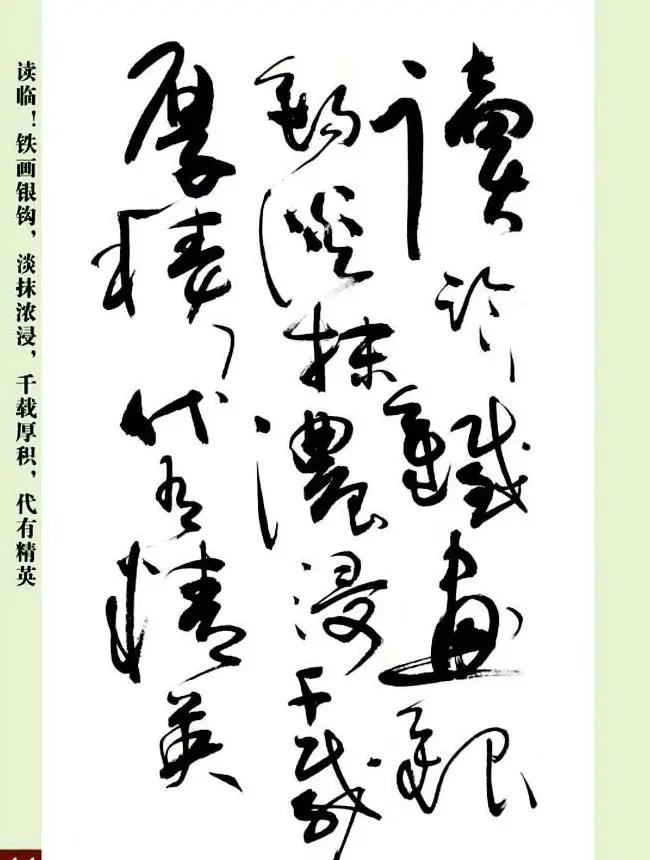 讀临鐵畫銀
鈎淡抹濃浸千載
厚積代有精英
读临！铁画银钩，淡抹浓浸，千载厚积，代有精英